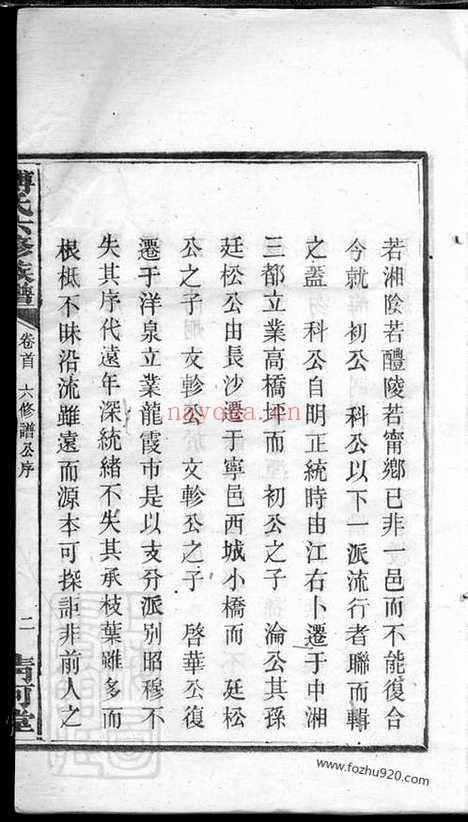 若湘陰若醴陵若甯鄉已非一邑而不能復合
今就 初公 科公以下一派流行者聯而輯
之蓋 科公自明正統時由江右卜遷于中湘
三都立業高橋垻而 初公之子 淪公其孫
廷松公由長沙遷于寧邑西城小橋而 廷松
公之子 文軫公 文軫公之子 啓華公復
遷于洋泉立業龍霞市是以支分派別昭穆不
失其序代遠年深統緒不失其承枝葉雖多而
根柢不昧沿流雖遠而源本可探詎非前人之
氏六修族譜
卷首 六修譜公序
二
清河堂
nayona.cn
www.fozhu920.com